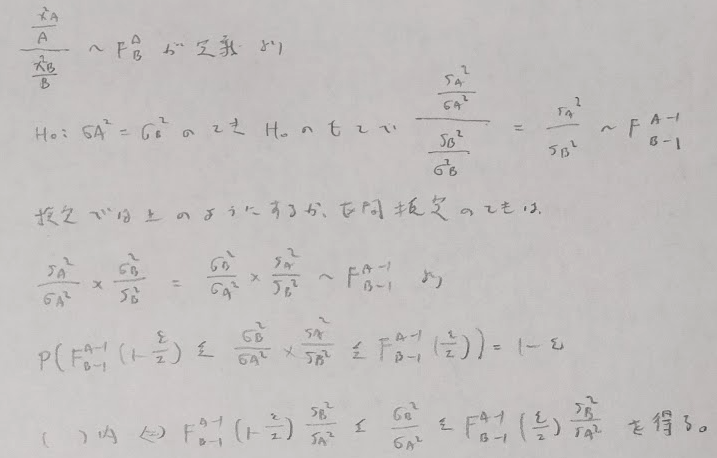 \frac{\frac{χ²_A}{A}}{\frac{χ²_B}{B}} ~ F^A_B が定義より
H₀: σ_A² = σ_B² のとき H₀ のもとで \frac{\frac{s_A²}{σ_A²}}{\frac{s_B²}{σ_B²}} = \frac{s_A²}{s_B²} ~ F^{A-1}_{B-1}
検定では上のようにするが、区間推定のときは、
\frac{s_A²}{σ_A²} × \frac{σ_B²}{s_B²} = \frac{σ_B²}{σ_A²} × \frac{s_A²}{s_B²} ~ F^{A-1}_{B-1} より
P(F^{A-1}_{B-1}(1-\frac{ε}{2}) ≤ \frac{σ_B²}{σ_A²} × \frac{s_A²}{s_B²} ≤ F^{A-1}_{B-1}(\frac{ε}{2})) = 1-ε
( )内 ⇔ F^{A-1}_{B-1}(1-\frac{ε}{2}) \frac{s_B²}{s_A²} ≤ \frac{σ_B²}{σ_A²} ≤ F^{A-1}_{B-1}(\frac{ε}{2}) \frac{s_B²}{s_A²} を得る。